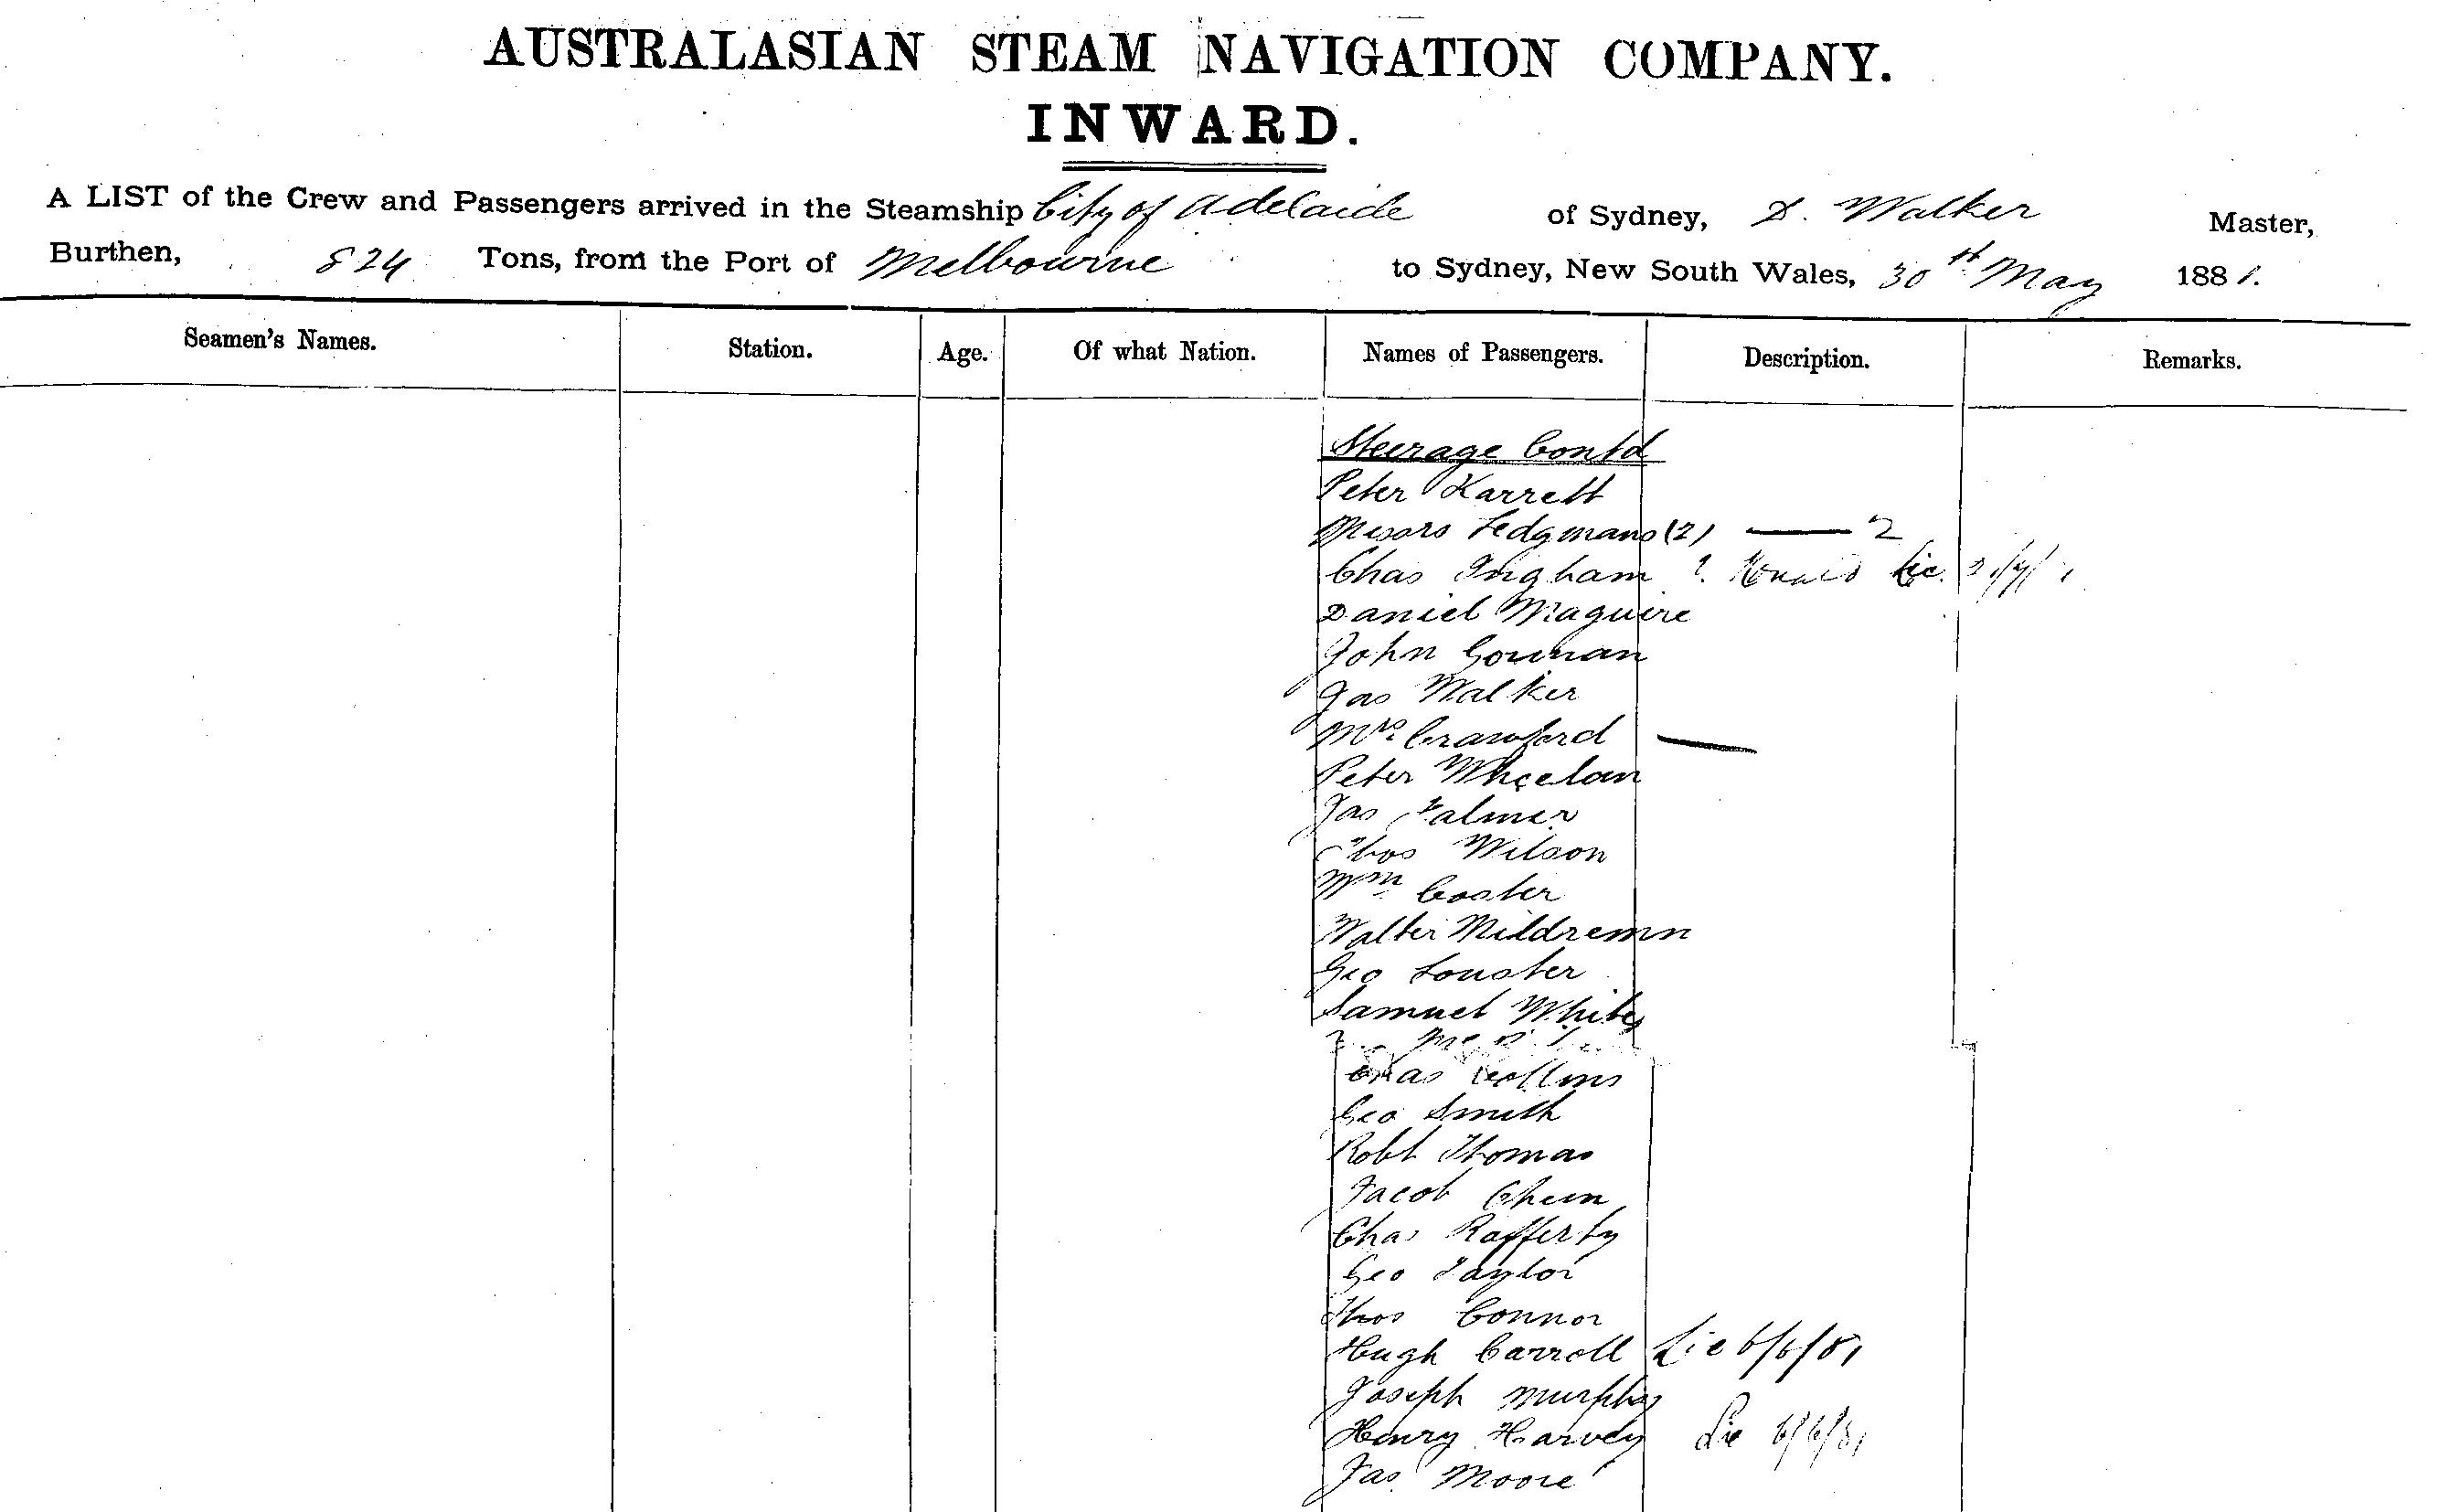 AUSTRALASIAN STEAM NAVIGATION COMPANY.
INWARD.
A LIST of the Crew and Passengers arrived in the Steamship City of Adelaide of Sydney, D. Walker Master,
Burthen, 824 Tons, from the Port of Melbourne to Sydney, New South Wales, 30th May 1881.
Seamen's Names. Station. Age. Of what Nation. Names of Passengers. Description. Remarks.
Steerage Contd
Peter Karrett
Messrs Fedgmans (2) — 2
Chas Ingham ? Lic.
Daniel Maguire
John Gorman
Jas Walker
Mrs. Crawford —
Peter Wheelan
Jas Palmer
Thos Wilson
Wm Coster
Walter Mildremn
Geo Fouster
Samuel White
Chas Collins
Geo Smith
Robt Thomas
Jacob Chun
Chas Rafferty
Geo Taylor
Thos Connor
Hugh Carroll Lic 6/6/81
Joseph Murphy
Henry Harvey Lic 6/6/81
Jas Moore